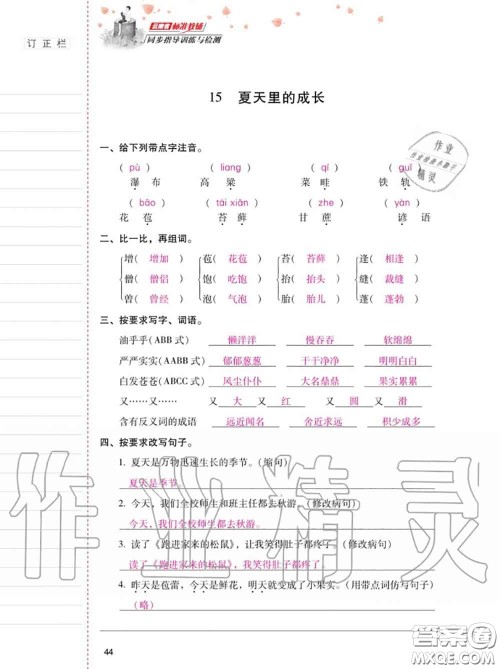 云南省标准教辅
同步指导训练与检测
订正栏
15 夏天里的成长
一、给下列带点字注音。
( pù ) ( liang ) ( qí ) ( guǐ )
瀑布 高粱 菜畦 铁轨
( bāo ) ( tái xiǎn ) ( zhe ) ( yàn )
花苞 苔藓 甘蔗 谚语
二、比一比，再组词。
增( 增加 ) 苞( 花苞 ) 苔( 苔藓 ) 逢( 相逢 )
僧( 僧侣 ) 饱( 吃饱 ) 抬( 抬头 ) 缝( 裁缝 )
曾( 曾经 ) 泡( 气泡 ) 胎( 胎儿 ) 蓬( 蓬勃 )
三、按要求写字、词语。
油乎乎(ABB 式) 懒洋洋 慢吞吞 软绵绵
严严实实(AABB 式) 郁郁葱葱 干干净净 明明白白
白发苍苍(ABCC 式) 风尘仆仆 大名鼎鼎 果实累累
又……又…… 又 大 又 红 又 圆 又 滑
含有反义词的成语 远近闻名 舍近求远 积少成多
四、按要求改写句子。
1. 夏天是万物迅速生长的季节。(缩句)
夏天是季节。
2. 今天，我们全校师生和班主任都去秋游。(修改病句)
今天，我们全校师生都去秋游。
3. 读了《跑进家来的松鼠》，让我笑得肚子都疼了。(修改病句)
读了《跑进家来的松鼠》，我笑得肚子都疼了。
4. 昨天是苞蕾，今天是鲜花，明天就变成了小果实。(用带点词仿写句子)
（略）
44
作业精灵
作业
精灵
答案圈
MXQE.COM